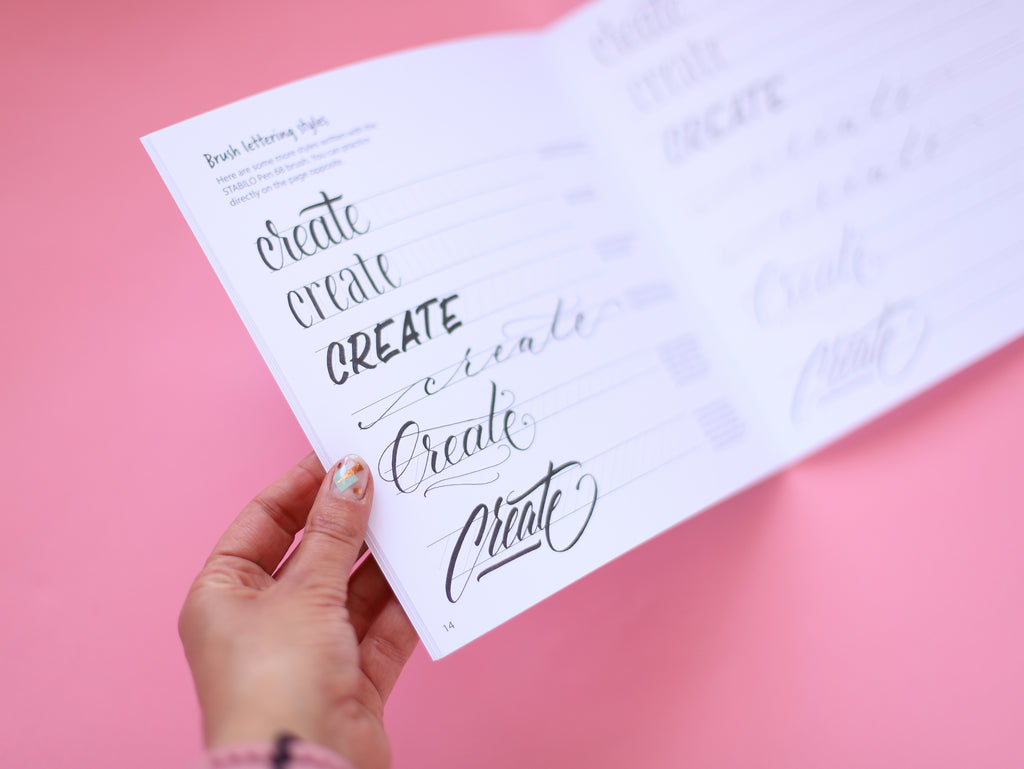 Brush lettering styles
Here are some more styles written with the
STABILO Pen 68 brush. You can practise
directly on the page opposite.
create
create
CREATE
create
Create
Create
14
create
create
CREATE
create
create
Create
Create